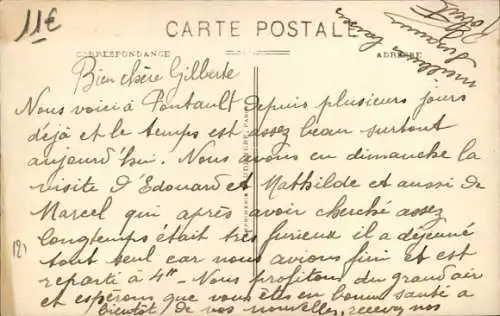 11€
CARTE POSTALE
CORRESPONDANCE
ADRESSE
Bien chère Gilberte
Nous voici à Pontault depuis plusieurs jours
déjà et le temps est assez beau surtout
aujourd'hui. Nous avons eu dimanche la
visite d'Edouard et Mathilde et aussi de
Marcel qui après avoir cherché assez
longtemps était très furieux il a déjeuné
tout seul car nous avions fini et est
reparti à 4H - Nous profitons du grand air
et espérons que vous êtes en bonne santé à
bientôt de vos nouvelles, recevez nos
meilleurs